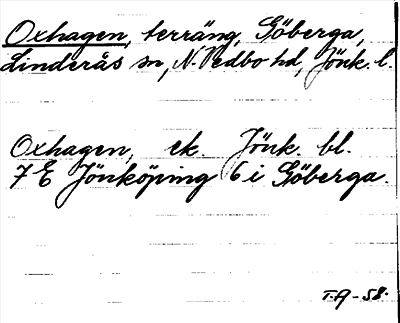 Oxhagen, terräng, Göberga,
Linderås sn, N. Vedbo hd, Jönk. l.
Oxhagen, ek. Jönk. bl.
7 E Jönköping 6 i Göberga.
T.A-58.